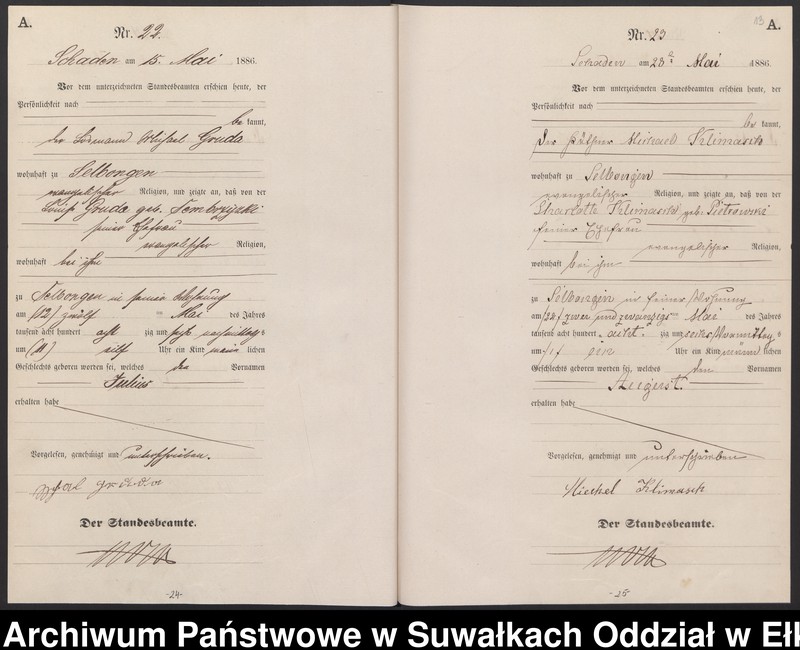 A.
Nr. 22.
Schaden am 15. Mai 1886.
Vor dem unterzeichneten Standesbeamten erschien heute, der
Persönlichkeit nach
be kannt,
der Gruda
wohnhaft zu Selbongen
evangelischer Religion, und zeigte an, daß von der
Gruda geb.
seiner Ehefrau
evangelischer Religion,
wohnhaft bei ihm
zu Selbongen in seiner Wohnung
am (12) zwölf ten Mai des Jahres
tausend acht hundert acht zig und sechs vormittags
um (11) eilf Uhr ein Kind männ lichen
Geschlechts geboren worden sei, welches den Vornamen
Julius
erhalten habe
Vorgelesen, genehmigt und unterschrieben.
gruda
Der Standesbeamte.
-24-
13
A.
Nr. 23
Schaden am 23 Mai 1886.
Vor dem unterzeichneten Standesbeamten erschien heute, der
Persönlichkeit nach
be kannt,
der Michael Klimasch
wohnhaft zu Selbongen
evangelischer Religion, und zeigte an, daß von der
Charlotte Klimasch geb. Pietrowski
seiner Ehefrau
evangelischer Religion,
wohnhaft bei ihm
zu Selbongen in seiner Wohnung
am zwei und zwanzigs ten Mai des Jahres
tausend acht hundert acht zig und sechs Vormittags
um 1 ein Uhr ein Kind männ lichen
Geschlechts geboren worden sei, welches den Vornamen
August.
erhalten habe
Vorgelesen, genehmigt und unterschrieben
Klimasch
Der Standesbeamte.
-25-
Archiwum Państwowe w Suwałkach Oddział w Eł